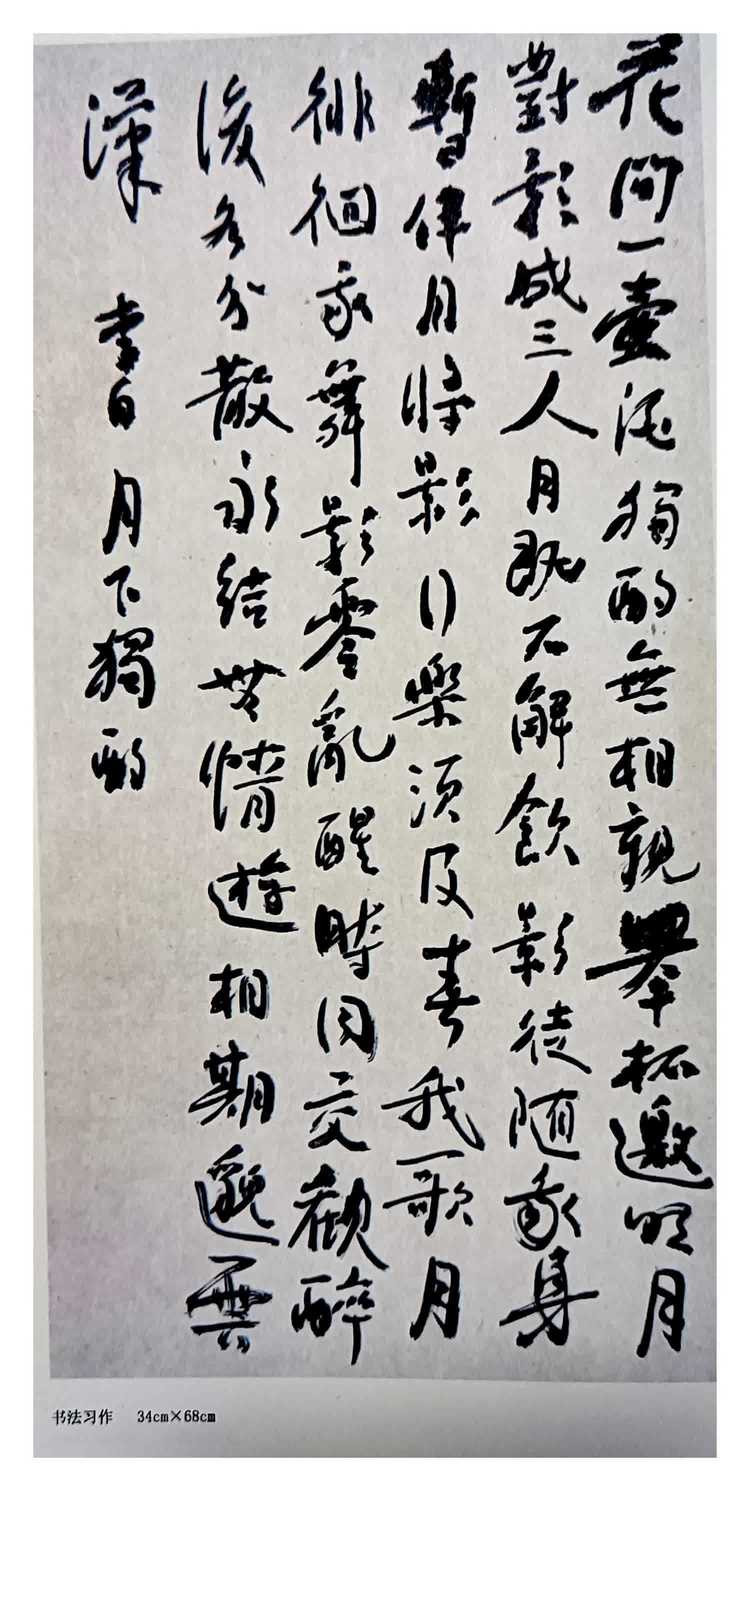 花間一壷酒獨酌無相親舉杯邀明月
對影成三人月既不解飲影徒随我身
暫伴月將影行樂須及春我歌月
徘徊我舞影零亂醒時同交歡醉
後各分散永結無情遊相期邈雲
漢 李白 月下獨酌
书法习作 34cm×68cm